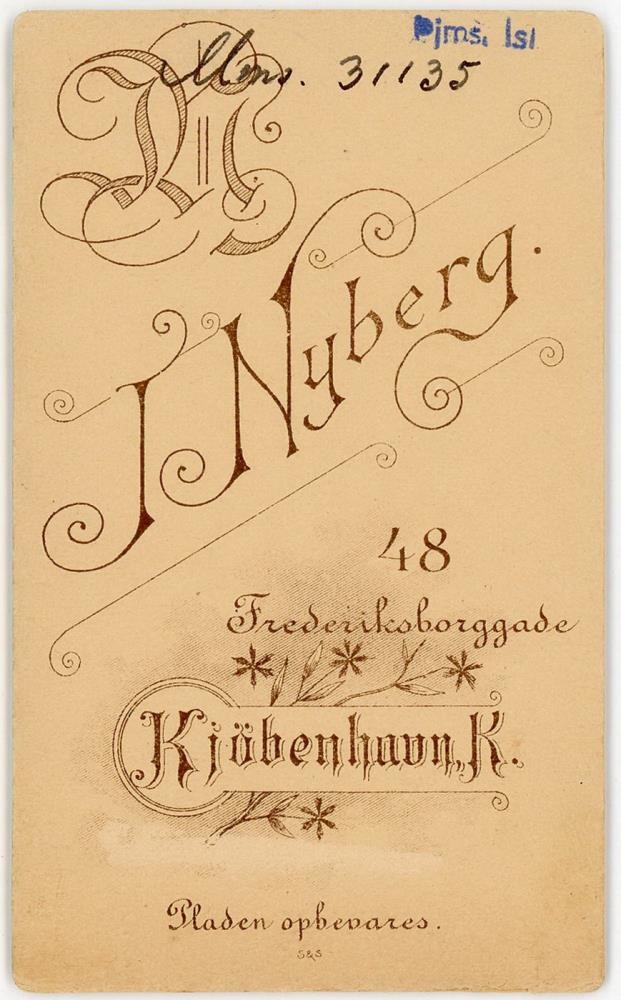 Þjms. Ísl
Mms. 31135
J. Nyberg.
48
Frederiksborggade
Kjöbenhavn, K.
Pladen opbevares.
S&S